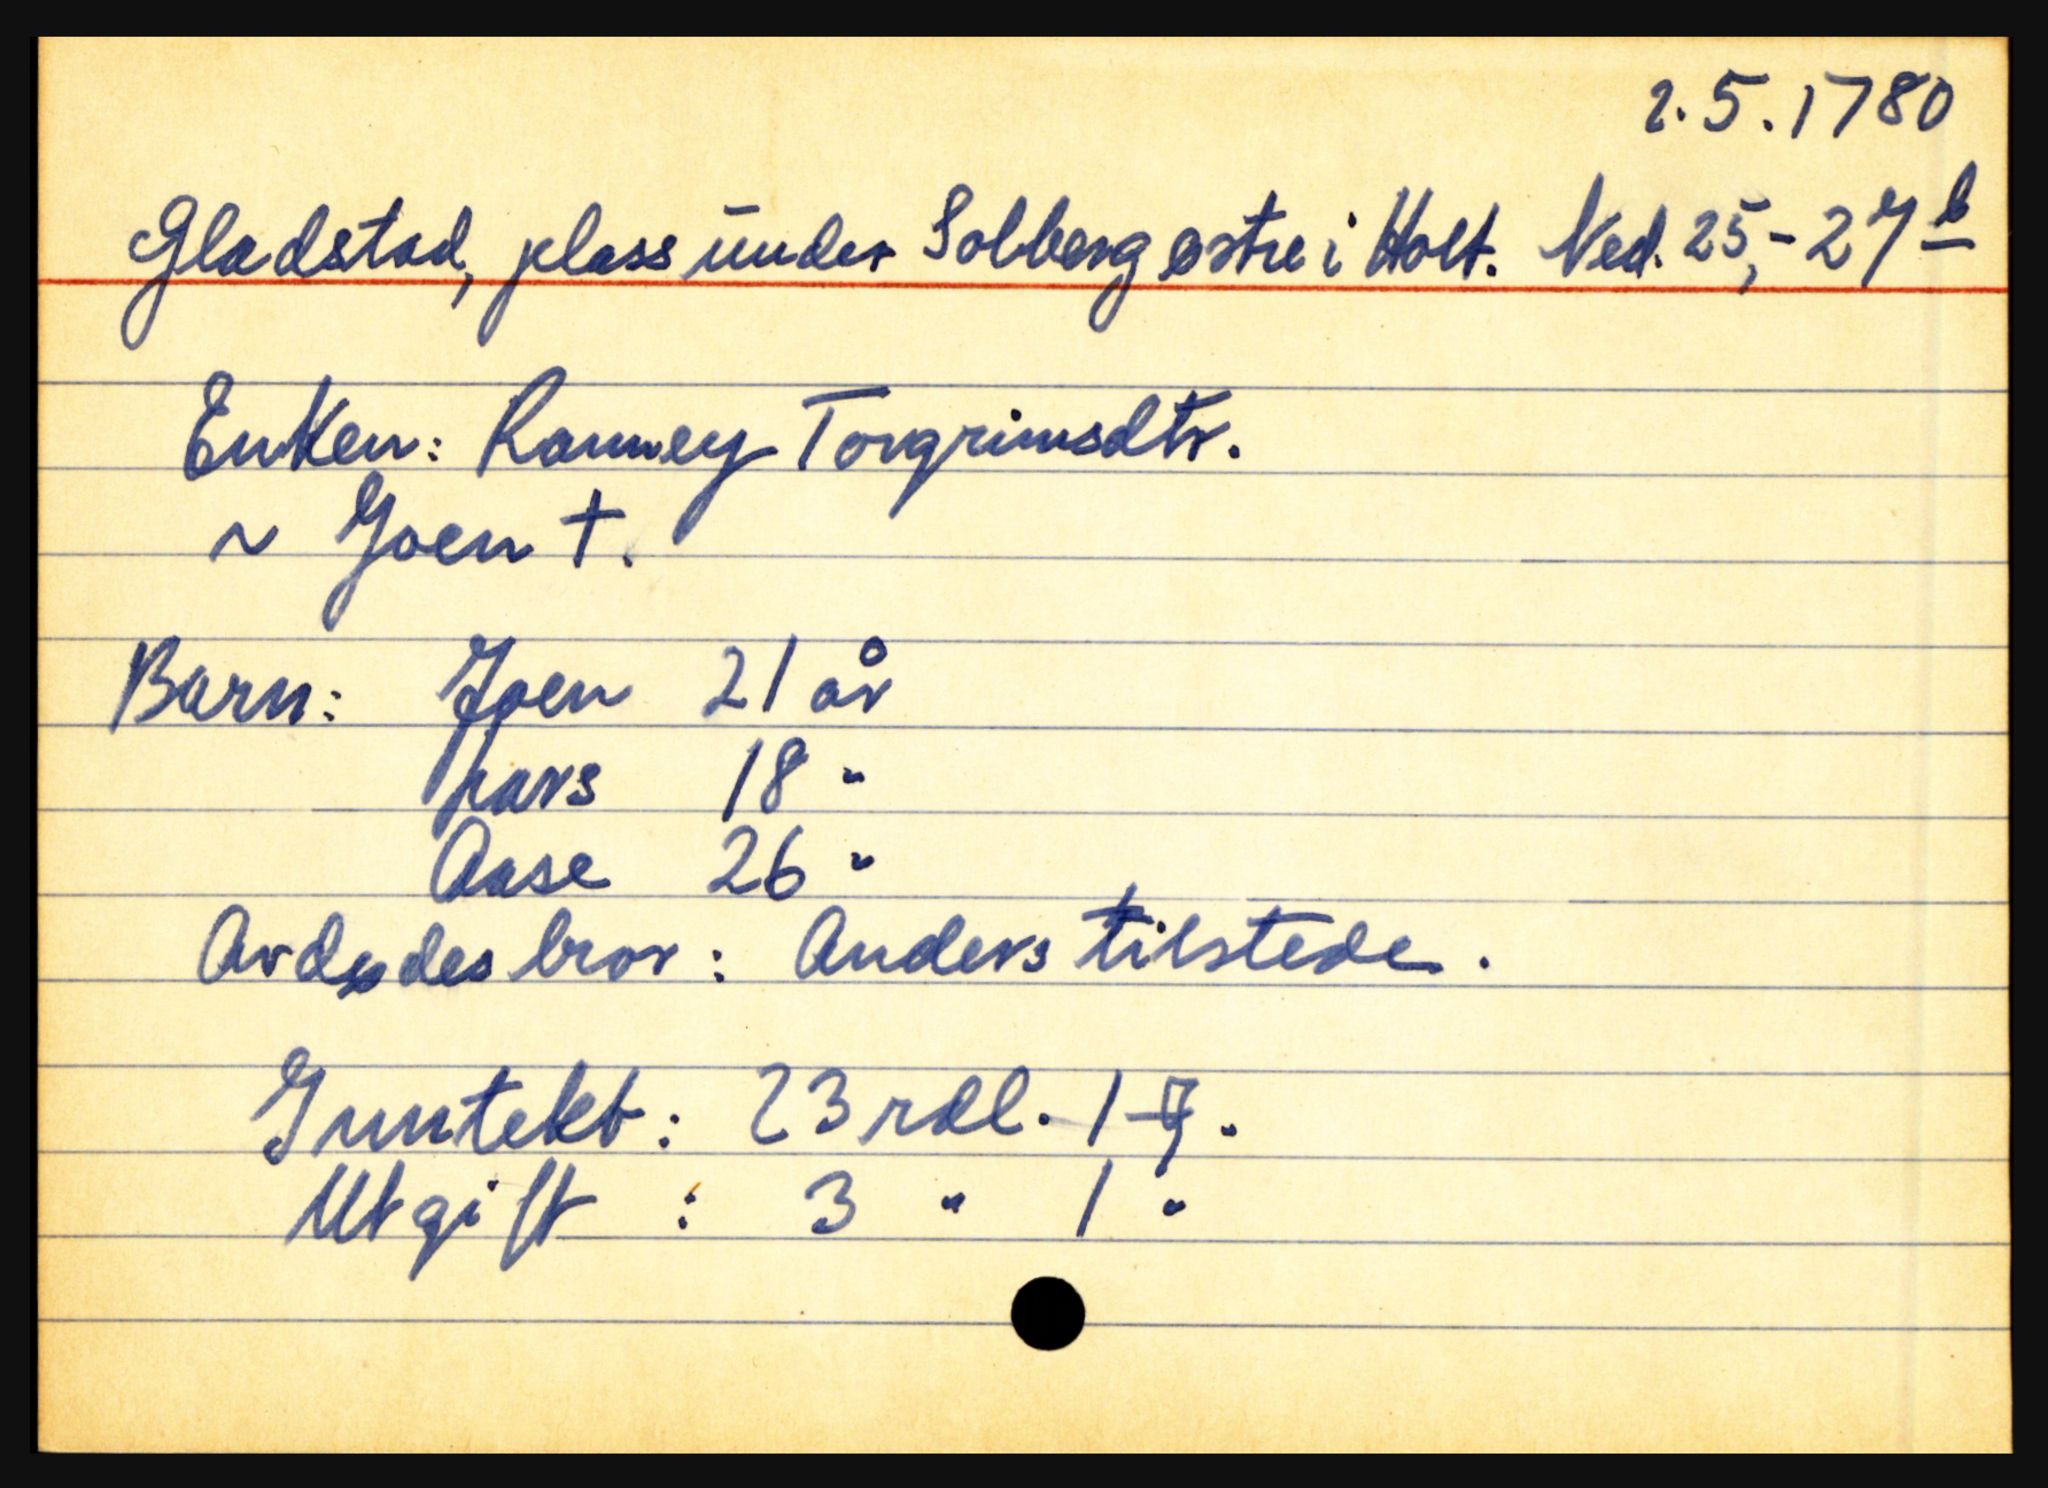 2.5.1780
Gladstad, plass under Solberg østre i Holt. Ned. 25,- 27 b
Enken: Ranney Torgrimsdtr.
~ Joen †.
Barn: Joen 21 år
Lars 18 "
Aase 26 "
Avdødes bror: Anders tilstede.
Inntekt: 23 rdl. - 1 - 7.
Utgift : 3 " 1 "